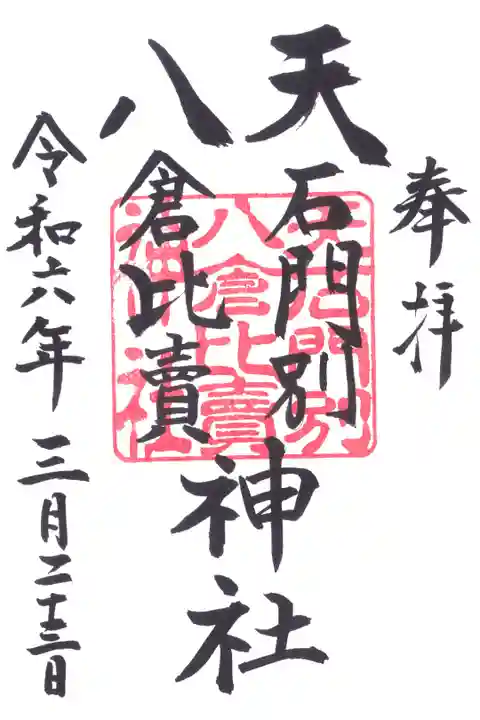 奉拝
天石門別
八倉比賣
神社
令和六年三月二十三日
天石門別
八倉比賣